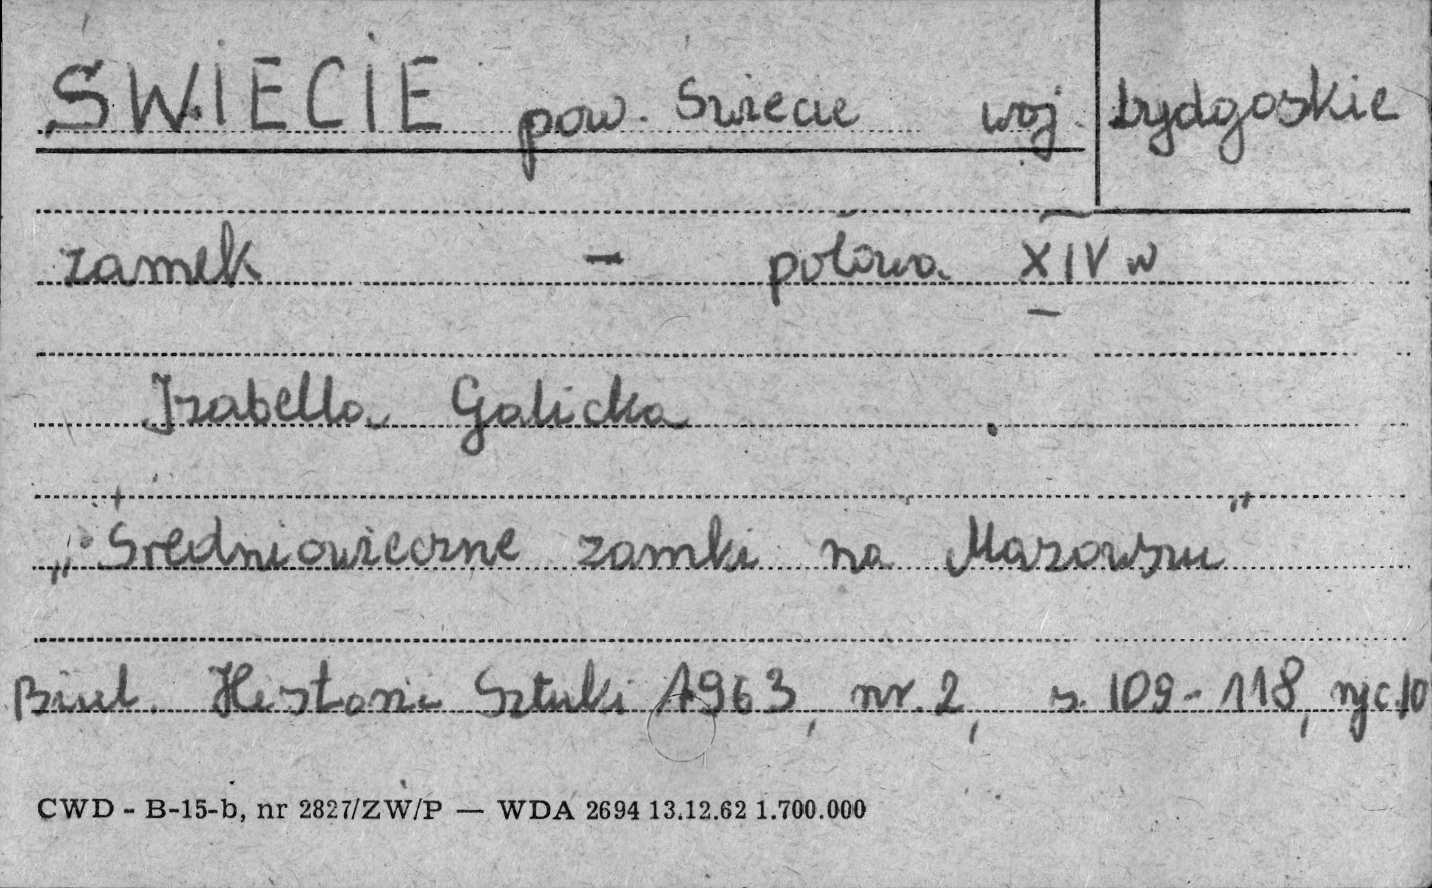 ŚWIECIE pow. Świecie woj. bydgoskie
zamek - połowa XIV w
Izabella Galicka
„Średniowieczne zamki na Mazowszu"
Biul. Historii Sztuki 1963, nr. 2, s. 109-118, ryc. 10
CWD - B-15-b, nr 2827/ZW/P — WDA 2694 13.12.62 1.700.000